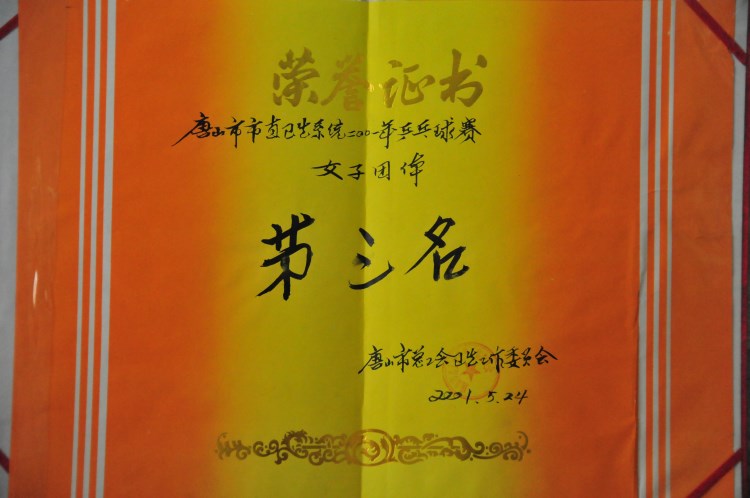 荣誉证书
唐山市市直卫生系统二〇〇一年乒乓球赛
女子团体
第三名
唐山市总工会卫生工作委员会
2001.5.24